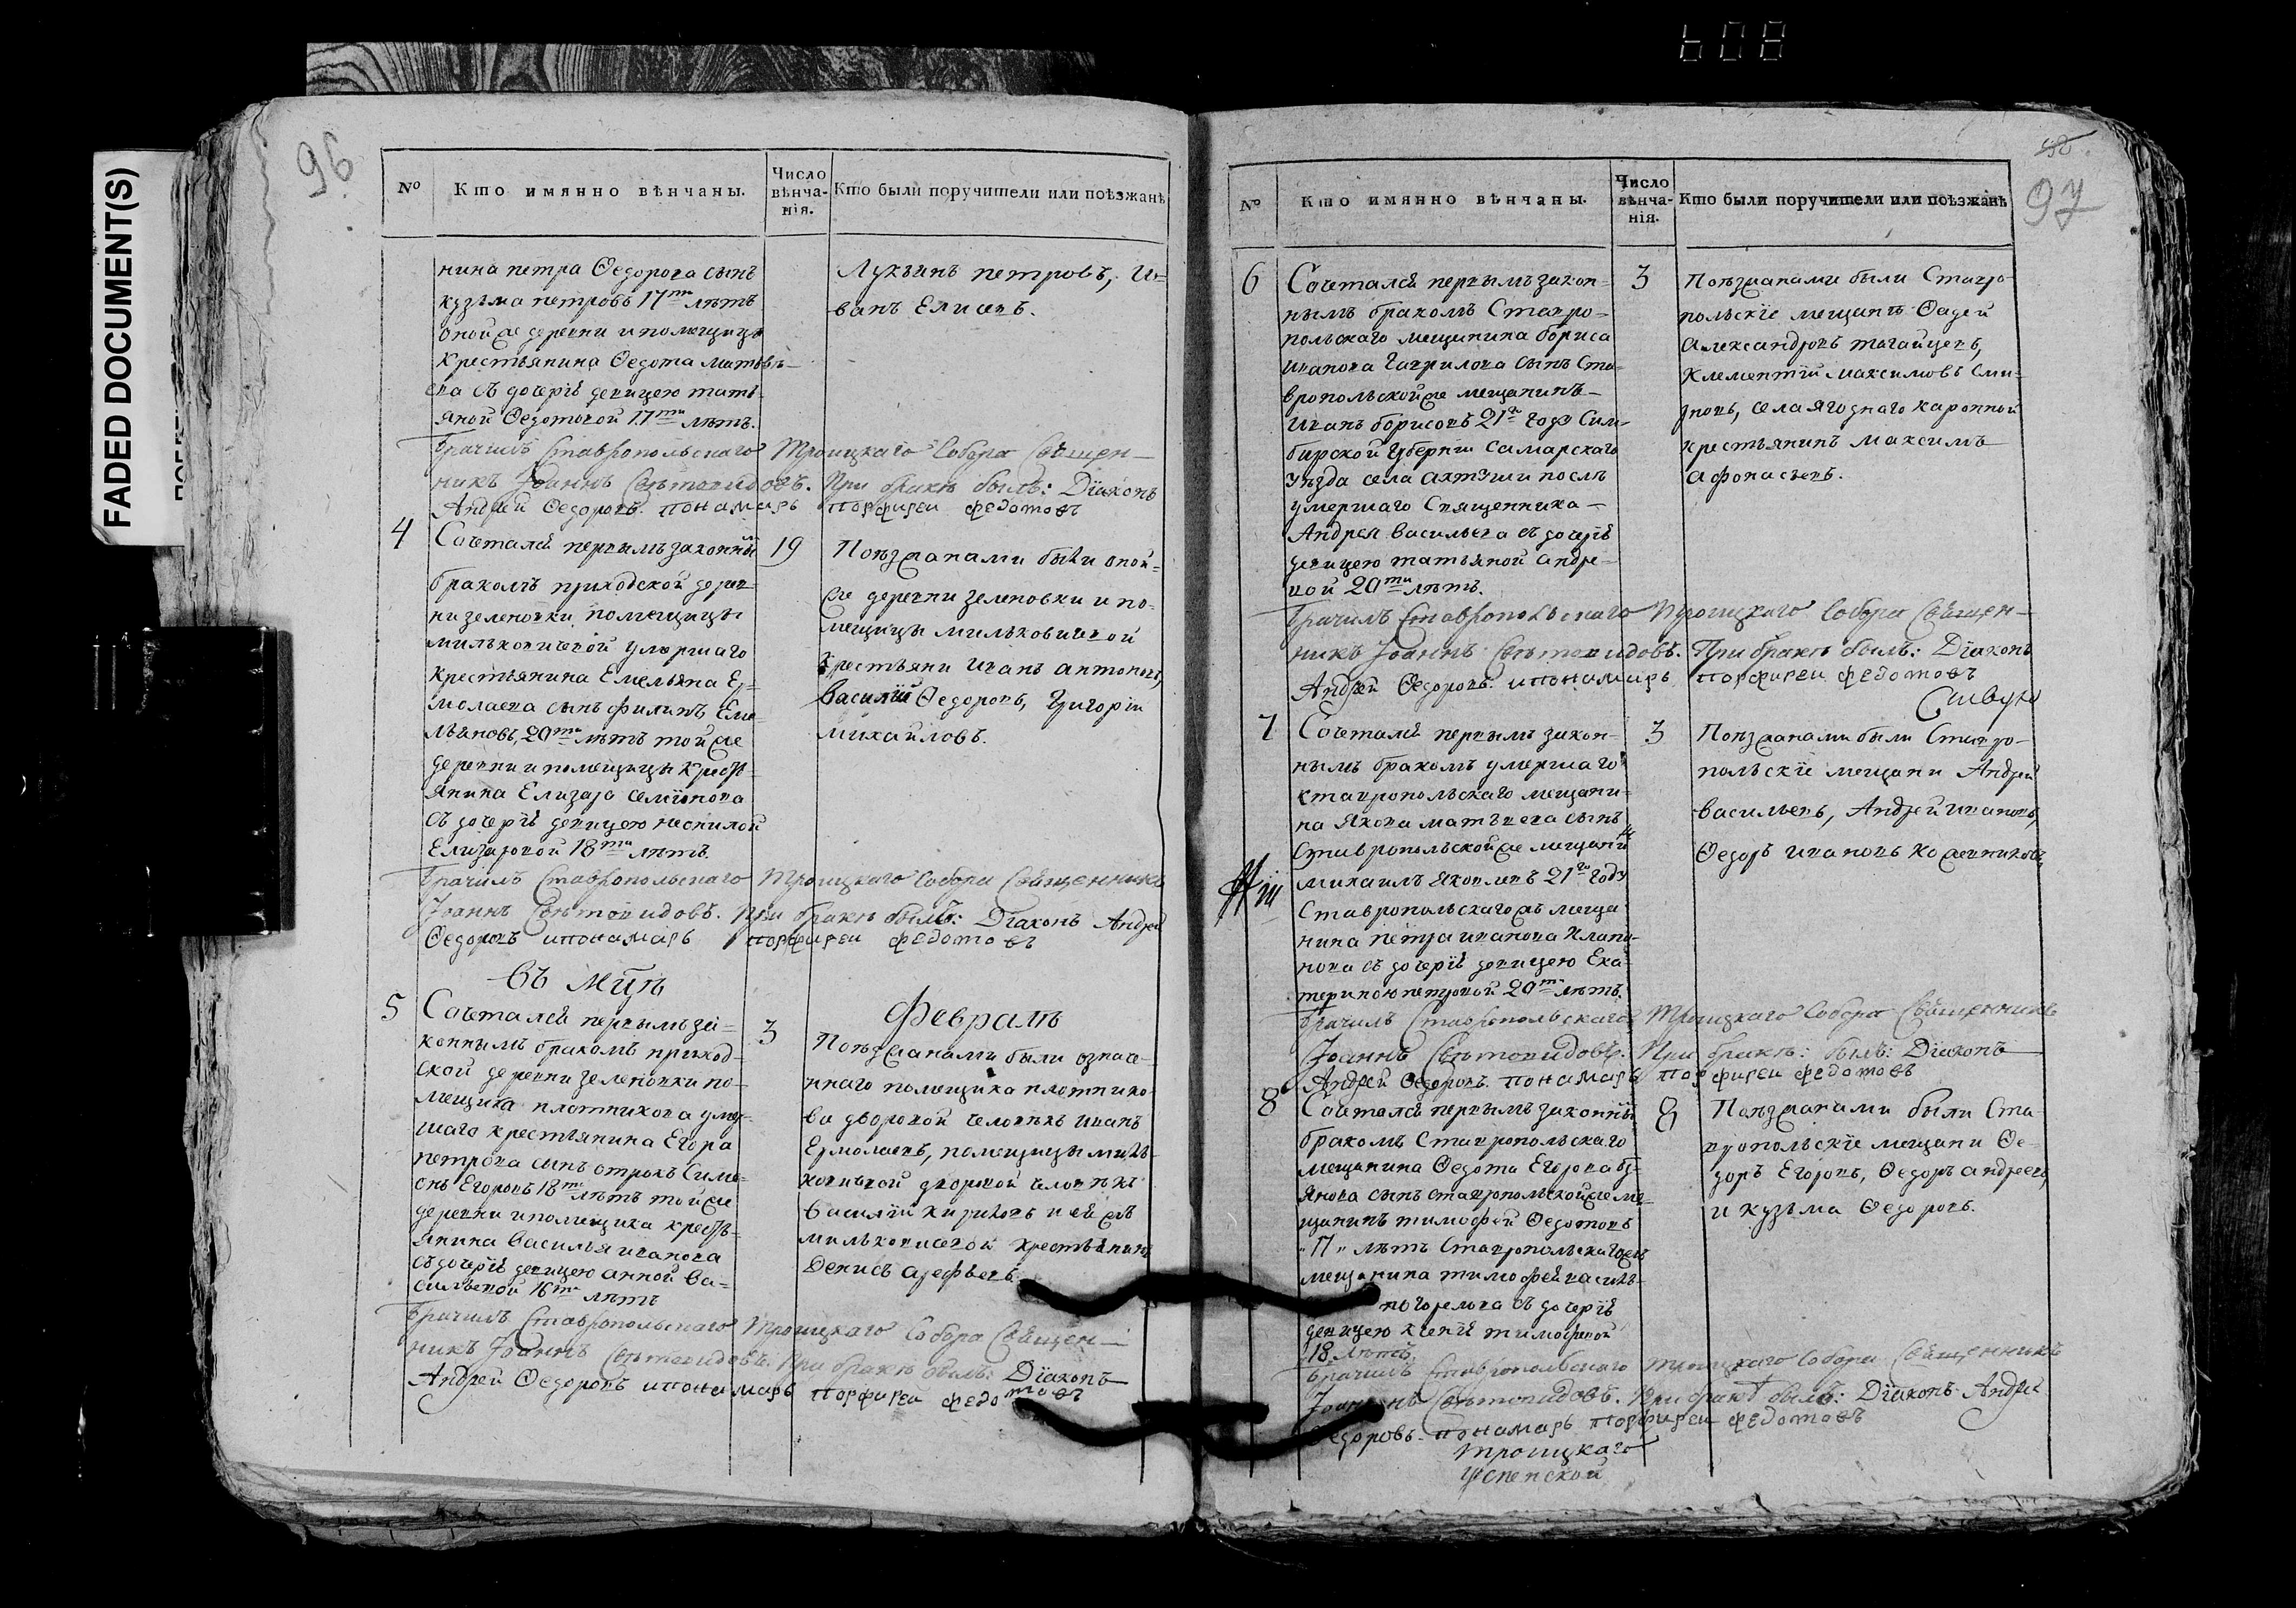 608
FADED DOCUMENT(S)
96
№
Кто имянно вѣнчаны.
Число вѣнча-
нія.
Кто были поручители или поѣзжанѣ
нина петра Ѳедорова сынъ
кузьма петровъ 17ти лѣтъ
оной же деревни и помещицы
крестьянина Ѳедота матвѣ-
ева съ дочерїю девицею тать-
яной Ѳедотовой 17ти лѣтъ.
Лукьянъ петровъ, И-
ванъ Елисеевъ.
Брачилъ Ставропольскаго Троицкаго Собора Священ-
никъ Іоаннъ Свѣтовидовъ. При бракѣ былъ: Дїаконъ
Андрей Ѳедоровъ. понамарь порфиреи федотовъ
4
Сочетался первымъ законны
бракомъ приходской дерев-
ни зеленовки помещицы
мильковичевой умершаго
крестьянина Емельяна Ер-
молаева сынъ филипъ Еме-
льяновъ, 20ти лѣтъ той же
деревни и помещицы крестьянина Елизара семїонова
съ дочерїю девицею неонилой
Елизаровой 18ти лѣтъ.
19
Поѣзжанами были оной-
же деревни зеленовки и по-
мещицы мильковичевой
крестьяни иванъ антоновъ,
василїй Ѳедоровъ, Григорїй
михайловъ.
Брачилъ Ставропольскаго Троицкаго Собора Священникъ
Іоаннъ Свѣтовидовъ. При бракѣ былъ: Дїаконъ Андрей
Ѳедоровъ ипонамарь порфиреи федотовъ
въ мцѣ
Февралѣ
5
Сочетался первымъ за-
коннымъ бракомъ приход-
ской деревни зеленовки по-
мещика плотникова умер-
шаго крестьянина Егора
петрова сынъ отрокъ Симе-
онъ Егоровъ 18ти лѣтъ той же
деревни и помещика кресть-
янина василья иванова
съ дочерїю девицею анной ва-
сильевой 16ти лѣтъ
3
Поѣзжанами были означе-
ннаго помещика плотнико-
ва дворовой человѣкъ иванъ
Ермолаевъ, помещицы миль-
ковичевой дворовой человѣкъ
василїй кириловъ и ей жъ
мильковичевой крестьянинъ
Денисъ арефьевъ.
Брачилъ Ставропольскаго Троицкаго Собора Священ-
никъ Іоаннъ Свѣтовидовъ. При бракѣ былъ: Дїаконъ
Андрей Ѳедоровъ ипонамарь порфиреи федотовъ
97
№
Кто имянно вѣнчаны.
Число
вѣнча-
нія.
Кто были поручители или поѣзжанѣ
6
Сочетался первымъ закон-
нымъ бракомъ Ставро-
польскаго мещанина бориса
иванова гаврилова сынъ Ста-
вропольской же мещанинъ
иванъ борисовъ 21го году Сим-
бирской Губернїи самарскаго
уѣзда села ахтуши послѣ
умершаго Священника
Андрея васильева съ дочерїю
девицею татьяной андре-
вой 20ти лѣтъ.
3
Поѣзжанами были Ставро-
польскїе мещанѣ Ѳадей
александровъ тагайцевъ,
клементїй максимовъ сми-
рновъ, села ягоднаго каронной
крестьянинъ максимъ
афонасьевъ.
Брачилъ Ставропольскаго Троицкаго Собора Священ-
никъ Іоаннъ Свѣтовидовъ. При бракѣ былъ: Дїаконъ
Андрей Ѳедоровъ. ипонамарь порфиреи федотовъ
7
Сочетался первымъ закон-
нымъ бракомъ умершаго
ставропольскаго мещани-
на якова матвеева сынъ
Ставропольской же мещани
михаилъ яковлевъ 21го году
Ставропольскаго жъ меща-
нина петра иванова
съ дочерїю девицею Ека-
териною петровой 20ти лѣтъ.
3
Поѣзжанами были Ставро-
польскїе мещани Андрей
васильевъ, Андрей ивановъ,
Ѳедоръ ивановъ кожевниковъ
Брачилъ Ставропольскаго Троицкаго Собора Священникъ
Іоаннъ Свѣтовидовъ. При бракѣ: былъ: Дїаконъ
Андрей Ѳедоровъ. понамарь порфиреи федотовъ
8
Сочетался первымъ законны
бракомъ Ставропольскаго
мещанина Ѳедота Егорова бу-
янова сынъ ставропольской же ме-
щанинъ тимофей Ѳедотовъ
„17„ лѣтъ Ставропольскаго жъ
мещанина тимофея василь-
погорелова съ дочерїю
девицею ксенїей тимофевой
18 лѣтъ
8
Поѣзжанами были Ста-
вропольскїе мещани Ѳе-
доръ Егоровъ, Ѳедоръ андреевъ,
и кузьма Ѳедоровъ.
Брачилъ Ставропольскаго Троицкаго Собора Священникъ
Іоаннъ Свѣтовидовъ. При бракѣ былъ: Дїаконъ Андрей
Ѳедоровъ. понамарь порфиреи федотовъ
Троицкаго
Успенской